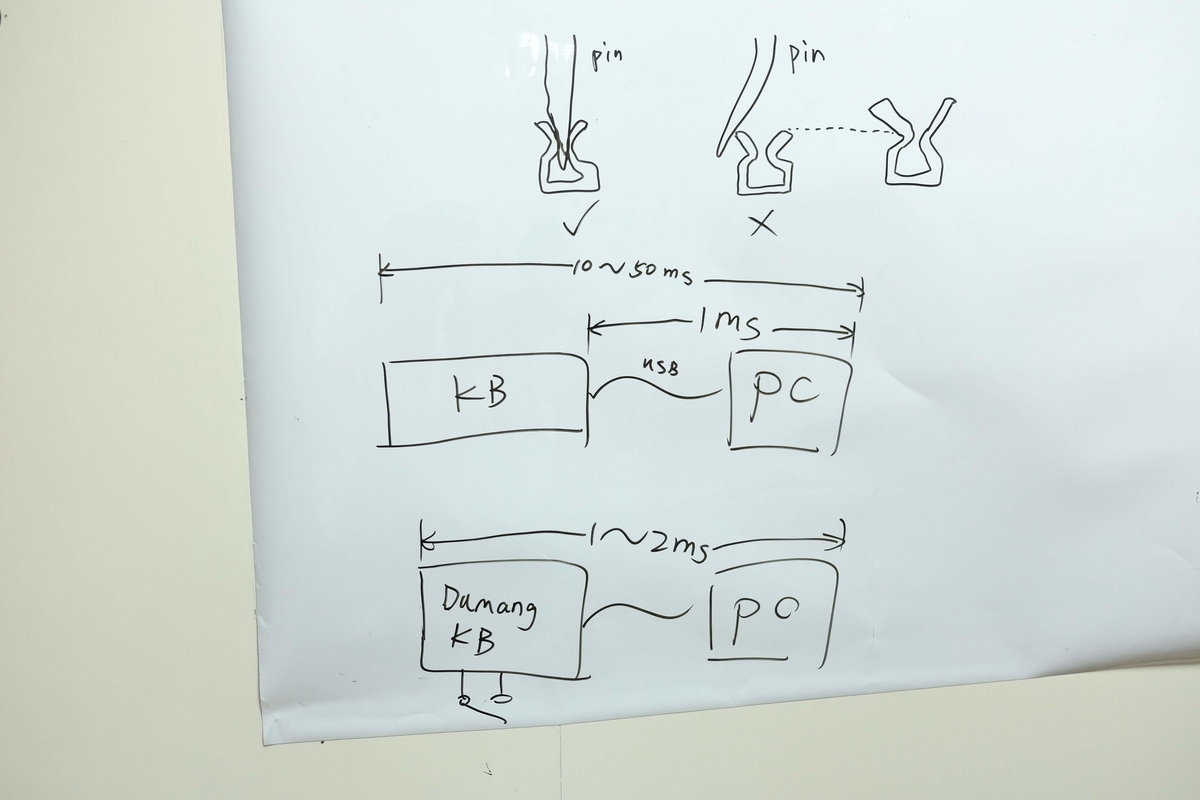 pin
pin
10~50ms
1ms
KB
USB
PC
1~2ms
Damang
KB
PC